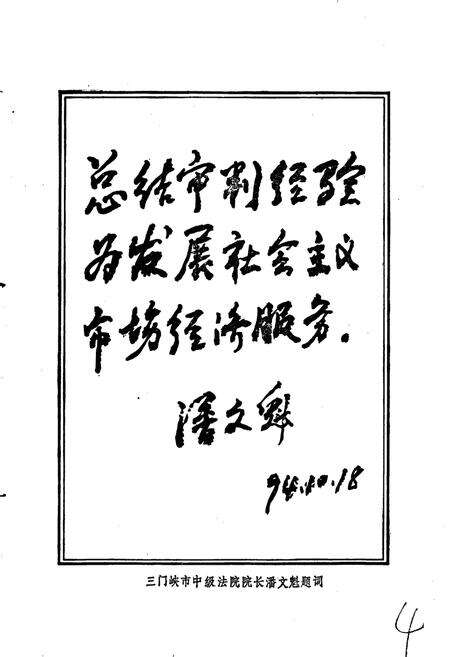 总结审判经验
为发展社会主义
市场经济服务。
潘文魁
94.10.18
三门峡市中级法院院长潘文魁题词
4